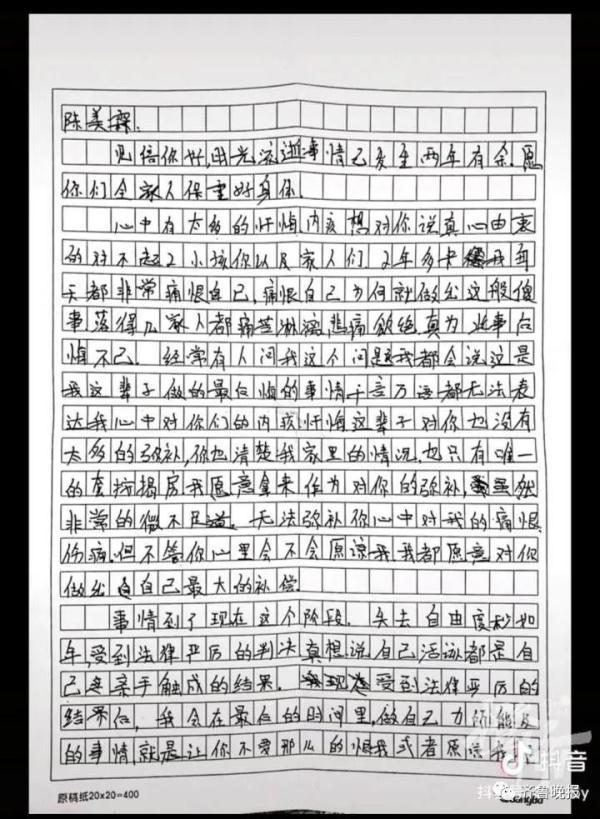 陈美霖.
见信你好,时光流逝事情已发生两年有余.愿
你们全家人保重好身体.
心中有太多的忏悔内疚想对你说真心由衷
的对不起2小孩你以及家人们.2年多来我每
天都非常痛恨自己,痛恨自己为何就做出这般傻
事落得几家人都痛苦淋漓,悲痛欲绝真为此事后
悔不已.经常有人问我这个问题我都会说这是
我这辈子做的最后悔的事情千言万语都无法表
达我心中对你们的内疚忏悔这辈子对你也没有
太多的弥补,你也清楚我家里的情况.也只有唯一
的套按揭房我愿意拿来作为对你的弥补,虽然
非常的微不足道.无法弥补你心中对我的痛恨
伤痛.但不管你心里会不会原谅我.我都愿意对你
做出自己最大的补偿.
事情到了现在这个阶段.失去自由度秒如
年,受到法律严厉的判决真想说自己活该都是自
己亲手触成的结果.受到法律严厉的
结果后,我会在最后的时间里,做自己力所能及
的事情,就是让你不要那么的恨我或者原谅我
原稿纸20×20=400
抖音
齐鲁晚报
Guangbo